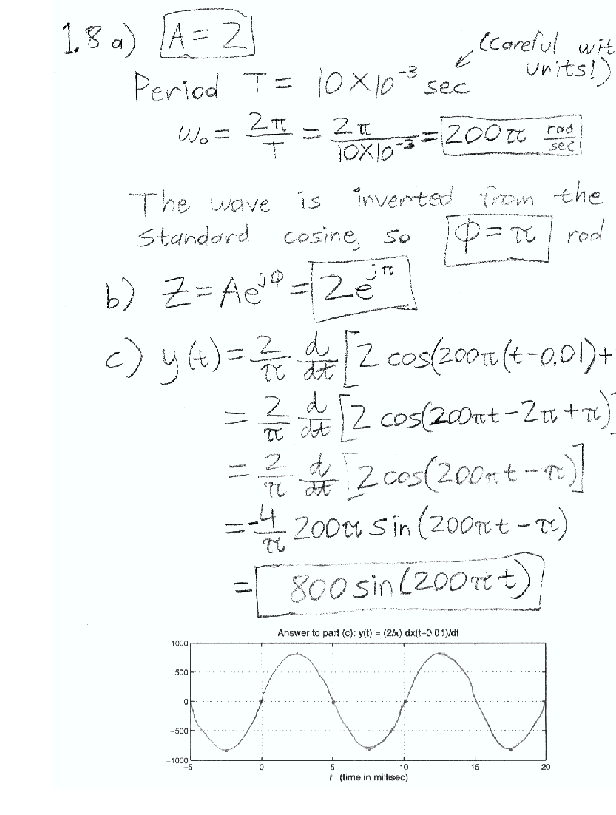 1.8 a) A = 2
(Careful wit
units!)
Period T = 10×10⁻³ sec
ω₀ = 2π/T = 2π/10×10⁻³ = 200π rad/sec
The wave is inverted from the
Standard cosine, so φ = π rad
b) Z = Ae^{jφ} = 2e^{jπ}
c) y(t) = 2/π d/dt [2 cos(200π(t-0.01)+
= 2/π d/dt [2 cos(200πt-2π+π)]
= 2/π d/dt [2 cos(200πt-π)]
= -4/π 200π sin(200πt-π)
= 800 sin(200πt)
Answer to part (c): y(t) = (2/π) dx(t-0.01)/dt
1000
500
0
-500
-1000
-5 0 5 10 15 20
t (time in millisec)